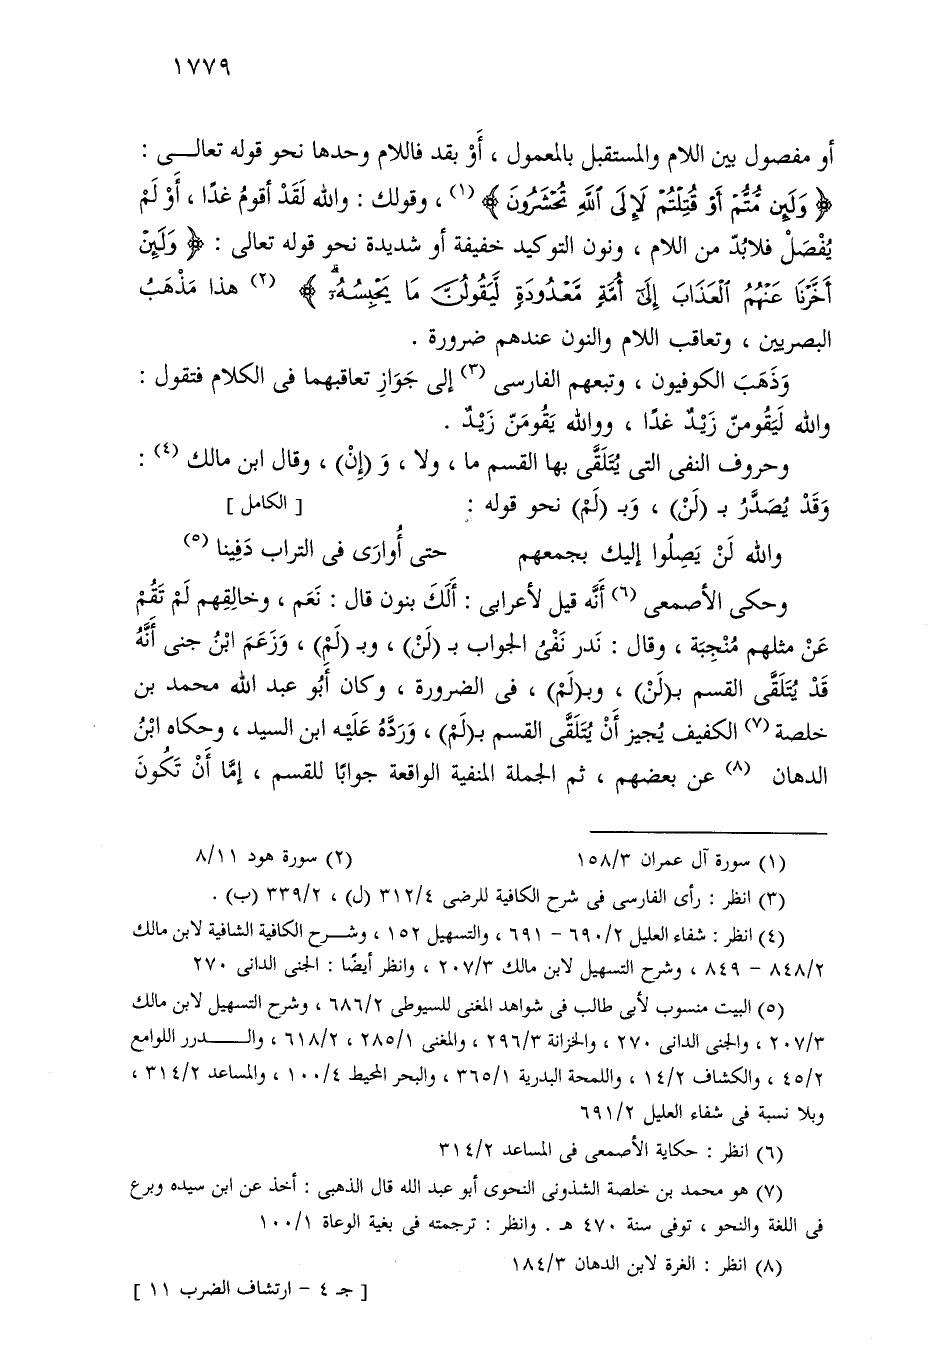 ١٧٧٩
أو مفصول بين اللام والمستقبل بالمعمول ، أَوْ بقد فاللام وحدها نحو قوله تعالــى :
﴿ وَلَئِن مُّتُّمْ أَوْ قُتِلْتُمْ لَإِلَى ٱللَّهِ تُحْشَرُونَ ﴾ (١) ، وقولك : والله لَقَدْ أقومُ غدًا ، أَوْ لَمْ
يُفْصَلْ فلابُدّ من اللام ، ونون التوكيد خفيفة أو شديدة نحو قوله تعالى : ﴿ وَلَئِنْ
أَخَّرْنَا عَنْهُمُ ٱلْعَذَابَ إِلَىٰٓ أُمَّةٍ مَّعْدُودَةٍ لَّيَقُولُنَّ مَا يَحْبِسُهُۥٓ ﴾ (٢) هذا مَذْهَبُ
البصريين ، وتعاقب اللام والنون عندهم ضرورة .
وَذَهَبَ الكوفيون ، وتبعهم الفارسى (٣) إلى جَوَازِ تعاقبهما فى الكلام فتقول :
والله لَيَقُومنّ زَيْدٌ غدًا ، ووالله يَقُومَنّ زَيْدٌ .
وحروف النفى التى يُتَلَقَّى بها القسم ما ، ولا ، وَ (إِنْ) ، وقال ابن مالك (٤) :
وَقَدْ يُصَدَّرُ بـ (لَنْ) ، وَبـ (لَمْ) نحو قوله : [ الكامل ]
والله لَنْ يَصِلُوا إليك بجمعهم حتى أُوارَى فى التراب دَفِينا (٥)
وحكى الأصمعى (٦) أَنَّه قيل لأعرابى : أَلَكَ بنون قال : نَعَم ، وخالِقِهم لَمْ تَقُمْ
عَنْ مثلهم مُنْجِبَة ، وقال : نَدر نَفْىُ الجواب بـ (لَنْ) ، وبـ (لَمْ) ، وَزَعَمَ ابْنُ جنى أَنَّهُ
قَدْ يُتَلَقَّى القسم بـ(لَنْ) ، وبـ(لَمْ) ، فى الضرورة ، وكان أَبُو عبد الله محمد بن
خلصة (٧) الكفيف يُجيز أَنْ يُتَلَقَّى القسم بـ(لَمْ) ، وَرَدَّهُ عَلَيْه ابن السيد ، وحكاه ابْنُ
الدهان (٨) عن بعضهم ، ثم الجملة المنفية الواقعة جوابًا للقسم ، إمَّا أَنْ تَكُونَ
(١) سورة آل عمران ١٥٨/٣ (٢) سورة هود ٨/١١
(٣) انظر : رأى الفارسى فى شرح الكافية للرضى ٣١٢/٤ (ل) ، ٣٣٩/٢ (ب) .
(٤) انظر : شفاء العليل ٦٩٠/٢ – ٦٩١ ، والتسهيل ١٥٢ ، وشــرح الكافية الشافية لابن مالك
٨٤٨/٢ – ٨٤٩ ، وشرح التسهيل لابن مالك ٢٠٧/٣ ، وانظر أيضًا : الجنى الدانى ٢٧٠
(٥) البيت منسوب لأبى طالب فى شواهد المغنى للسيوطى ٦٨٦/٢ ، وشرح التسهيل لابن مالك
٢٠٧/٣ ، والجنى الدانى ٢٧٠ ، والخزانة ٢٩٦/٣ ، والمغنى ٢٨٥/١ ، ٦١٨/٢ ، والــــدرر اللوامع
٤٥/٢ ، والكشاف ١٤/٢ ، واللمحة البدرية ٣٦٥/١ ، والبحر المحيط ١٠٠/٤ ، والمساعد ٣١٤/٢ ،
وبلا نسبة فى شفاء العليل ٦٩١/٢
(٦) انظر : حكاية الأصمعى فى المساعد ٣١٤/٢
(٧) هو محمد بن خلصة الشذونى النحوى أبو عبد الله قال الذهبى : أخذ عن ابن سيده وبرع
فى اللغة والنحو ، توفى سنة ٤٧٠ هـ . وانظر : ترجمته فى بغية الوعاة ١٠٠/١
(٨) انظر : الغرة لابن الدهان ١٨٤/٣
[ جـ ٤ – ارتشاف الضرب ١١ ]